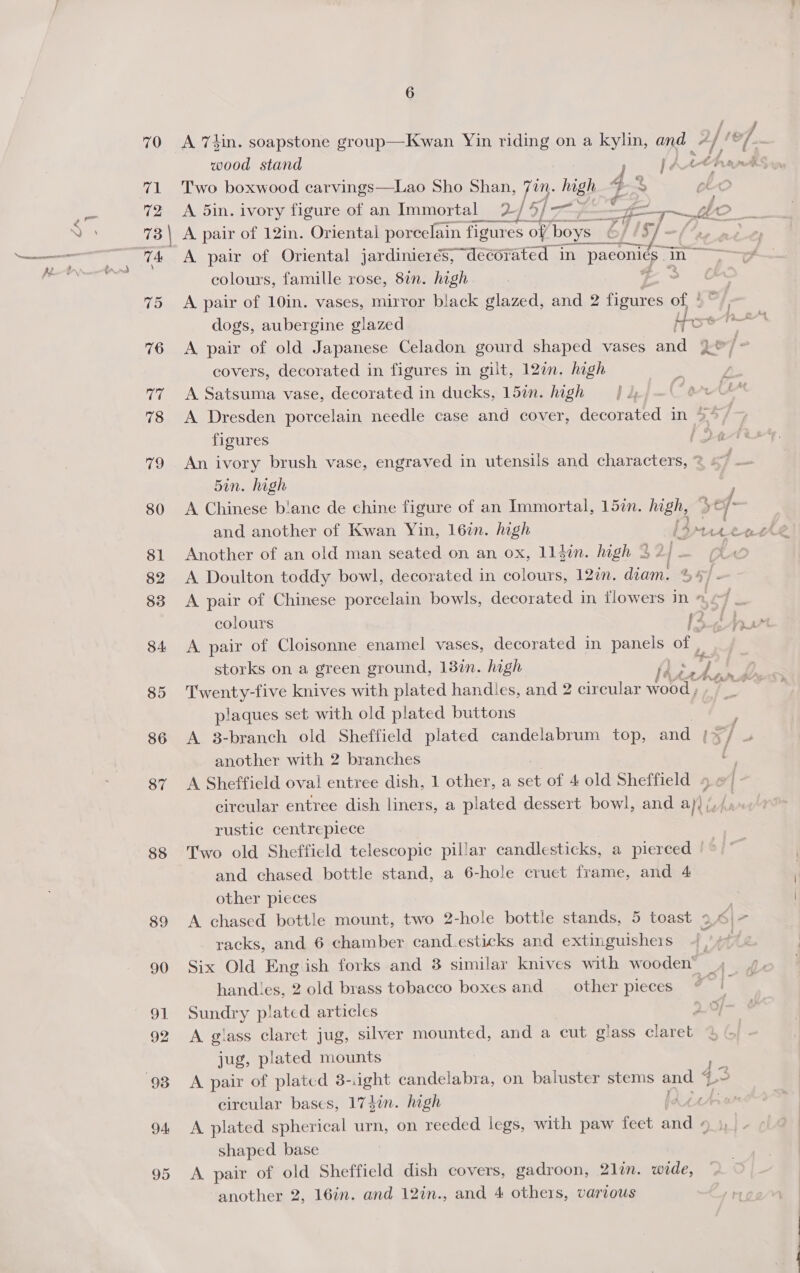 6
70 A 7½in. soapstone group—Kwan Yin riding on a kylin, and
wood stand
71 Two boxwood carvings—Lao Sho Shan, 7in. high
72 A 5in. ivory figure of an Immortal 2/5/-
73 A pair of 12in. Oriental porcelain figures of boys
74 A pair of Oriental jardinierés, decorated in paeonies in
colours, famille rose, 8in. high
75 A pair of 10in. vases, mirror black glazed, and 2 figures of
dogs, aubergine glazed
76 A pair of old Japanese Celadon gourd shaped vases and
covers, decorated in figures in gilt, 12in. high
77 A Satsuma vase, decorated in ducks, 15in. high
78 A Dresden porcelain needle case and cover, decorated in
figures
79 An ivory brush vase, engraved in utensils and characters,
5in. high
80 A Chinese blanc de chine figure of an Immortal, 15in. high,
and another of Kwan Yin, 16in. high
81 Another of an old man seated on an ox, 11½in. high
82 A Doulton toddy bowl, decorated in colours, 12in. diam.
83 A pair of Chinese porcelain bowls, decorated in flowers in
colours
84 A pair of Cloisonne enamel vases, decorated in panels of
storks on a green ground, 13in. high
85 Twenty-five knives with plated handles, and 2 circular wood
plaques set with old plated buttons
86 A 3-branch old Sheffield plated candelabrum top, and
another with 2 branches
87 A Sheffield oval entree dish, 1 other, a set of 4 old Sheffield
circular entree dish liners, a plated dessert bowl, and a
rustic centrepiece
88 Two old Sheffield telescopic pillar candlesticks, a pierced
and chased bottle stand, a 6-hole cruet frame, and 4
other pieces
89 A chased bottle mount, two 2-hole bottle stands, 5 toast
racks, and 6 chamber candlesticks and extinguishers
90 Six Old English forks and 3 similar knives with wooden
handles, 2 old brass tobacco boxes and other pieces
91 Sundry plated articles
92 A glass claret jug, silver mounted, and a cut glass claret
jug, plated mounts
93 A pair of plated 3-light candelabra, on baluster stems and
circular bases, 17½in. high
94 A plated spherical urn, on reeded legs, with paw feet and
shaped base
95 A pair of old Sheffield dish covers, gadroon, 21in. wide,
another 2, 16in. and 12in., and 4 others, various